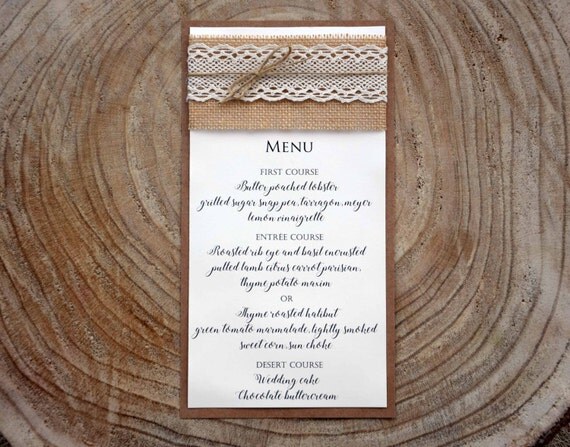 MENU
FIRST COURSE
Butter poached lobster
grilled sugar snap pea, tarragon, meyer
lemon vinaigrette
ENTRÉE COURSE
Roasted rib eye and basil encrusted
pulled lamb citrus carrot parisian,
thyme potato maxim
OR
Thyme roasted halibut
green tomato marmalade, lightly smoked
sweet corn, sun choke
DESERT COURSE
Wedding cake
Chocolate buttercream